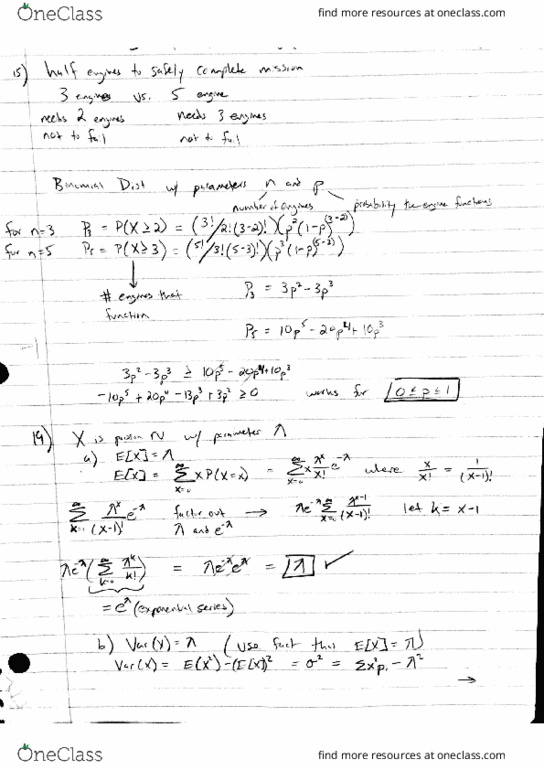 OneClass
find more resources at oneclass.com
15) half engines to safely complete mission
3 engines vs. 5 engine
needs 2 engines needs 3 engines
not to fail not to fail
Binomial Dist w/ parameters n and p
number of engines probability the engine functions
for n=3 P₃ = P(X≥2) = (3!/2!(3-2)!)(p²(1-p)^(3-2))
for n=5 P₅ = P(X≥3) = (5!/3!(5-3)!)(p³(1-p)^(5-3))
# engines that
function
P₃ = 3p²-3p³
P₅ = 10p⁵-20p⁴+10p³
3p²-3p³ ≥ 10p⁵-20p⁴+10p³
-10p⁵+20p⁴-13p³+3p² ≥0 works for 0≤p≤1
19) X is poisson N w/ parameter λ
a) E[X]=λ
E[X] = ∞Σx=0 x P(X=x) = ∞Σx=0 x λ^x/x! e^-λ where x/x! = 1/(x-1)!
∞Σx=1 λ^x/(x-1)! e^-λ factor out λ and e^-λ → λe^-λ ∞Σx=0 λ^(x-1)/(x-1)! let k=x-1
λe^-λ(∞Σk=0 λ^k/k!) = λe^-λe^λ = λ ✓
=e^λ (exponential series)
b) Var(X)=λ (use fact that E[X]=λ)
Var(X) = E(X²)-(E[X])² = σ² = Σx²pᵢ-λ²
→
OneClass
find more resources at oneclass.com